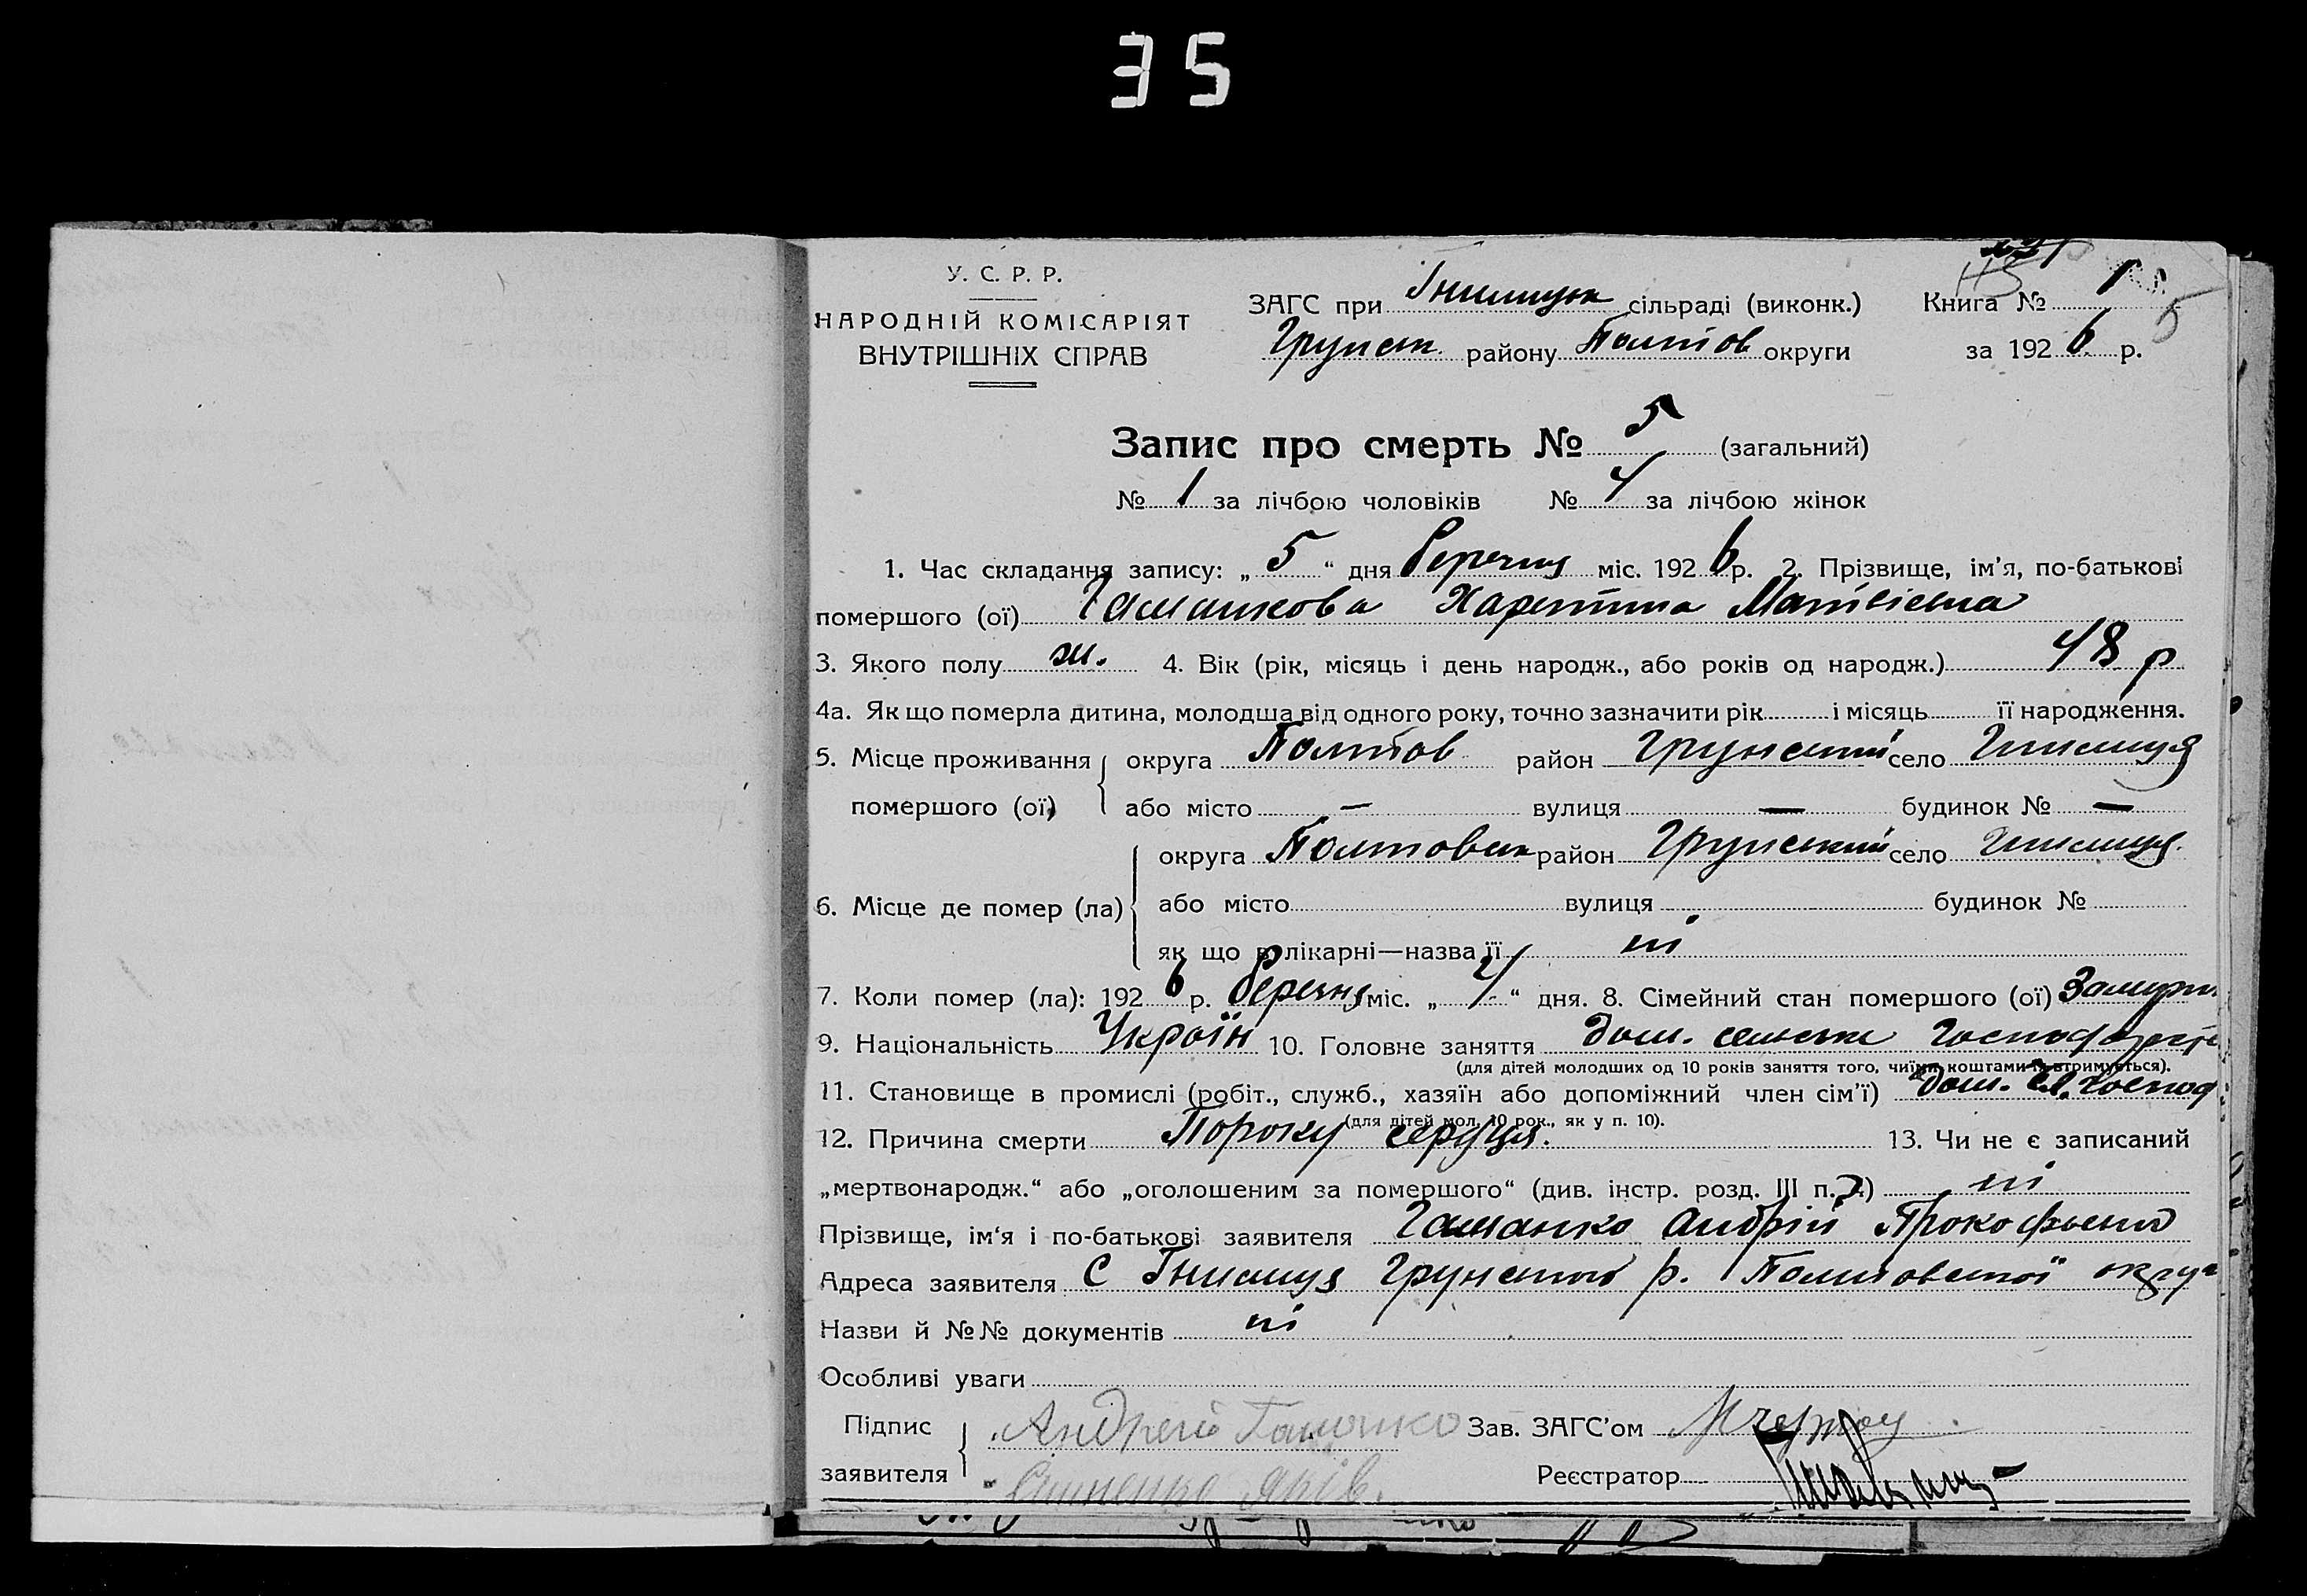 35
У. С. Р. Р.
НАРОДНІЙ КОМІСАРІЯТ
ВНУТРІШНІХ СПРАВ
ЗАГС при сільраді (виконк.)
Грунськ. району Полтов округи
Книга № 1
за 1926 р.
5
Запис про смерть № 5 (загальний)
№ 1 за лічбою чоловіків № 4 за лічбою жінок
1. Час складання запису: „5“ дня березня міс. 1926 р. 2. Прізвище, ім’я, по-батькові
помершого (ої) Гаманкова Харетина Матвієвна
3. Якого полу ж. 4. Вік (рік, місяць і день народж., або років од народж.) 48 р
4а. Як що померла дитина, молодша від одного року, точно зазначити рік і місяць її народження.
5. Місце проживання помершого (ої) округа Полтов район Грунський село Гнилиця
або місто — вулиця — будинок № —
6. Місце де помер (ла) округа Полтовськ район Грунський село Гнилиця
або місто вулиця будинок №
як що в лікарні—назва її ні
7. Коли помер (ла): 1926 р. березня міс. „4“ дня. 8. Сімейний стан помершого (ої)
9. Національність Україн 10. Головне заняття дом. сельске
(для дітей молодших од 10 років заняття того, чиїми коштами їх втримується).
11. Становище в промислі (робіт., служб., хазяїн або допоміжний член сім’ї) дом. с. господ
(для дітей мол. 10 рок., як у п. 10).
12. Причина смерти Пороку серуця. 13. Чи не є записаний
„мертвонародж.“ або „оголошеним за помершого“ (див. інстр. розд. III п. 7) ні
Прізвище, ім‘я і по-батькові заявителя Гаманко Андрій
Адреса заявителя С Гнилиця Грунського р. Полтовської округ
Назви й №№ документів ні
Особливі уваги
Підпис заявителя Андрей Гаманко Зав. ЗАГС’ом
Яків. Реєстратор